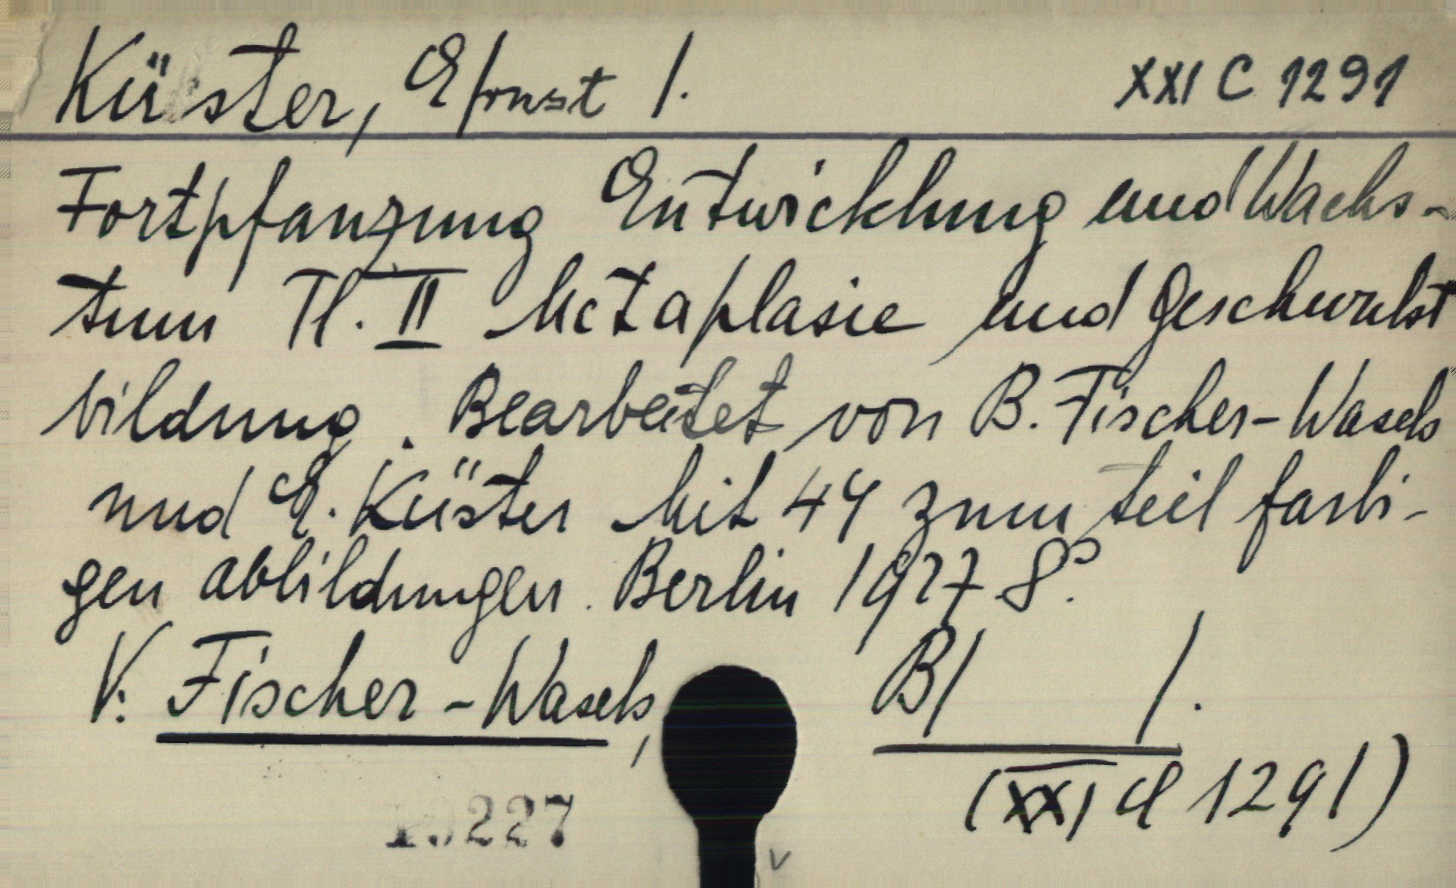 Küster, E/rnst /.
XXI C 1291
Fortpfanzung Entwicklung und Wachs-
tum Tl. II Metaplasie und Geschwulst
bildung. Bearbeitet von B. Fischer-Wasels
und E. Küster Mit 44 zum teil farbi-
gen abbildungen. Berlin 1927 8°.
V. Fischer-Wasels, B/ /.
(XXI C 1291)
227